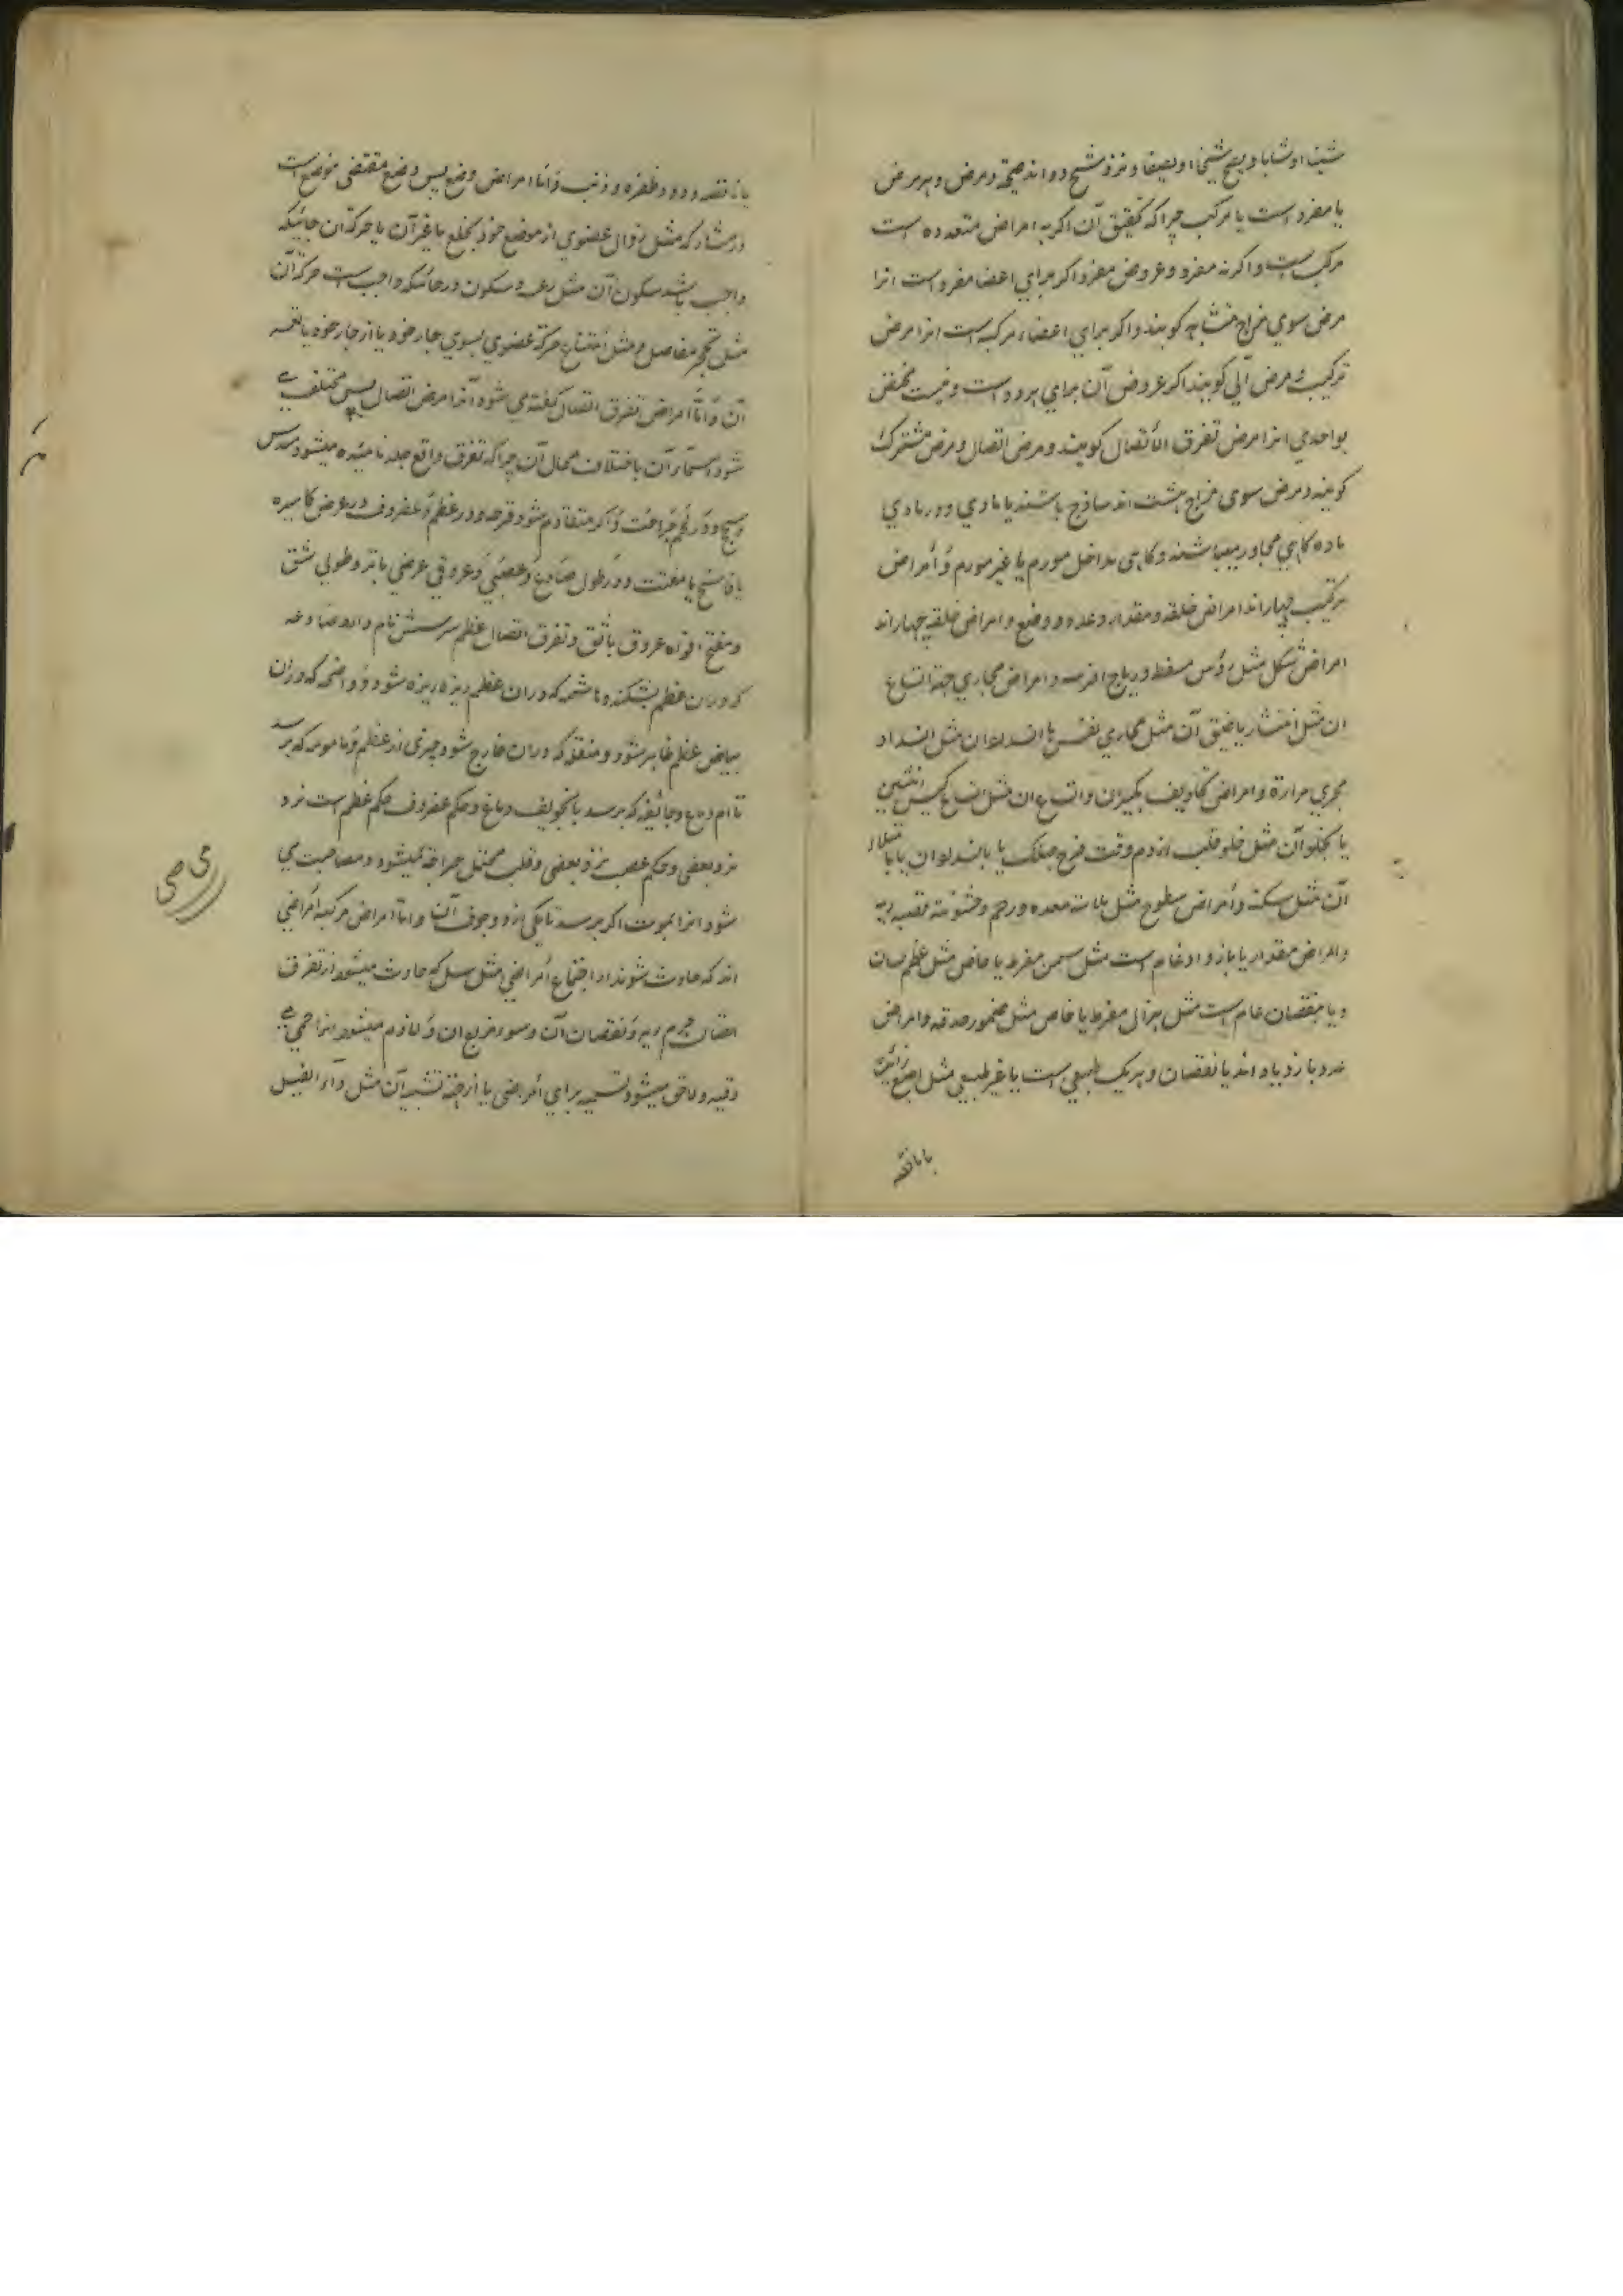 شیخا او شابا و یصح شیخا و یصیفا و نزد شیخ دو اند صحة و مرض و هر مرض
یا مفرد است یا مرکب چرا که تحقیق آن اکر به امراض متعدده است
مرکب است و اکر نه مفرد و عروض مفرد اکر برای اعضا مفرد است انرا
مرض سوی مزاج متشابه کویند و اکر برای اعضاء مرکبه است انرا مرض
ترکیب و مرض آلی کویند اکر عروض آن برای هر دو است و نیست مختص
بواحدی انرا مرض تفرق الاتصال کویند و مرض اتصال و مرض مشترک
کویند و مرض سوی مزاج هشت اند ساذج باشند یا مادی و در مادی
ماده کاهی مجاور میباشند و کاهی مداخل مورم یا غیر مورم و امراض
ترکیب چهار اند امراض خلقه و مقدار و عدد و وضع و امراض خلقه چهار اند
امراض شکل مثل رؤس مسفط و ریاح افرسه و امراض مجاری جهة اتساع
ان مثل انتشار یا ضیق آن مثل مجاری نفس یا انسداد ان مثل انسداد
مجری مرارة و امراض تجاویف بکبر ان و اتساع ان مثل اتساع کیس انثیین
یا بخلو آن مثل خلو قلب از دم وقت فرح مهلک یا بانسداد ان یا بامتلاء
آن مثل سکته و امراض سطوح مثل ملاسة معده و رحم و خشونة قصبه ریه
و امراض مقدار یا بازدیاد عام است مثل سمن مفرط یا خاص مثل عظم لسان
و یا بنقصان عام است مثل هزال مفرط یا خاص مثل ضمور حدقه و امراض
عدد بازدیاد اند یا نقصان و هر یک طبیعی است یا غیر طبیعی مثل اصبع زائده
یا ناقصه
یا ناقصه و دود و ظفره و ذنب و اما امراض وضع پس وضع مقتضی موضع است
و مشارکه مثل زوال عضوی از موضع خود بخلع یا غیر آن یا حرکة ان جائیکه
واجب باشد سکون آن مثل رعشه و سکون در جائیکه واجب است حرکة آن
مثل تحجر مفاصل و مثل امتناع حرکة عضوی بسوی جار خود یا از جار خود یا تعسر
آن و اما امراض تفرق اتصال کفته می شود آنرا مرض اتصال پس مختلف می
شود اسماء آن باختلاف محال آن چرا که تفرق واقع جلد نامیده میشود خدش
و سحج و در لحم جراحت و اکر متقادم شود قرحه و در عظم و غضروف در عرض کاسره
یا فاسخ یا مفتت و در طول صادع و عصبی و عروقی عرضی باتر و طولی شق
و مفتح افواه عروق باثق و تفرق اتصال عظم سر شش نام دارد صادعه
که در ان عظم بشکند و هاشمه که در ان عظم ریزه ریزه شود و واضحه که در ان
بیاض عظم ظاهر شود و منقله که در ان خارج شود چیزی از عظم و مامومه که برسد
تا ام دماغ و جائفه که برسد بتجویف دماغ و حکم غضروف حکم عظم است نزد
نزد بعضی و حکم عصب نزد بعضی و قلب محتمل جراحة نمیشود و مصاحبت می
شود انرا بموت اکر برسد تا یکی از دو جوف آن و اما امراض مرکبه امراضی
اند که حادث شوند از اجتماع امراضی مثل سل که حادث میشود از تفرق
اتصال جرم ریه و نقصان آن و سوء مزاج ان و لازم میشود انرا حمی
دقیه و لاحق میشود تسمیه برای امراضی یا از جهة تشبیه آن مثل داء الفیل